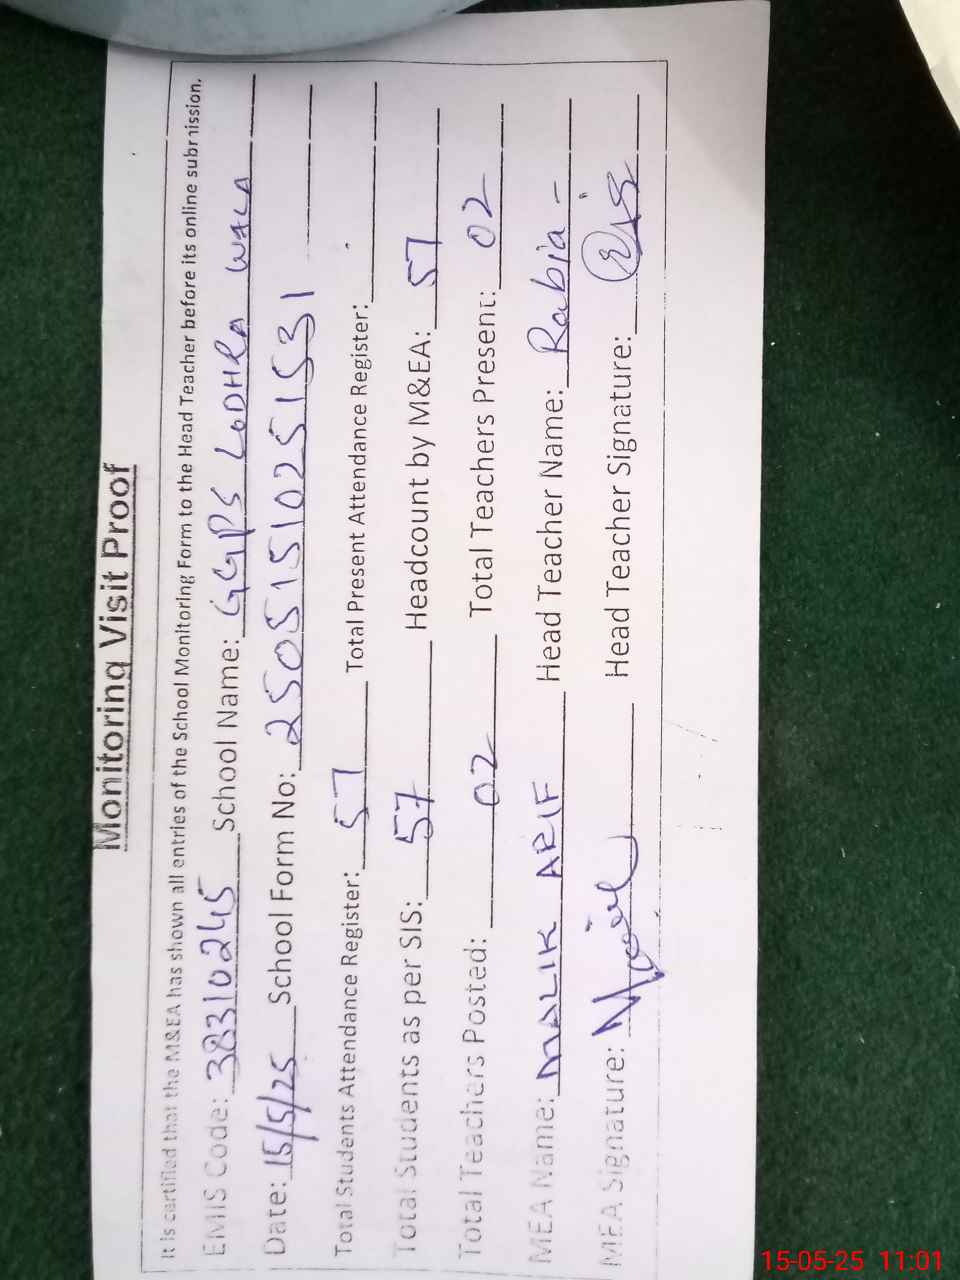 Monitoring Visit Proof
It is certified that the M&EA has shown all entries of the School Monitoring Form to the Head Teacher before its online submission.
EMIS Code: 38310245 School Name: GGPS LODHRA WALA
Date: 15/5/25 School Form No: 25051510251531
Total Students Attendance Register: 57 Total Present Attendance Register:
Total Students as per SIS: 57 Headcount by M&EA: 57
Total Teachers Posted: 02 Total Teachers Present: 02
MEA Name: MALIK ARIF Head Teacher Name: Rabia -
MEA Signature: Head Teacher Signature:
15-05-25 11:01